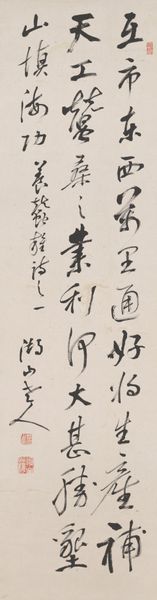 互市東西萬里通好將生産補
天工蠶桑之業利何大甚勝墾
山塡海功 養蠶雜詩之一 湖山老人